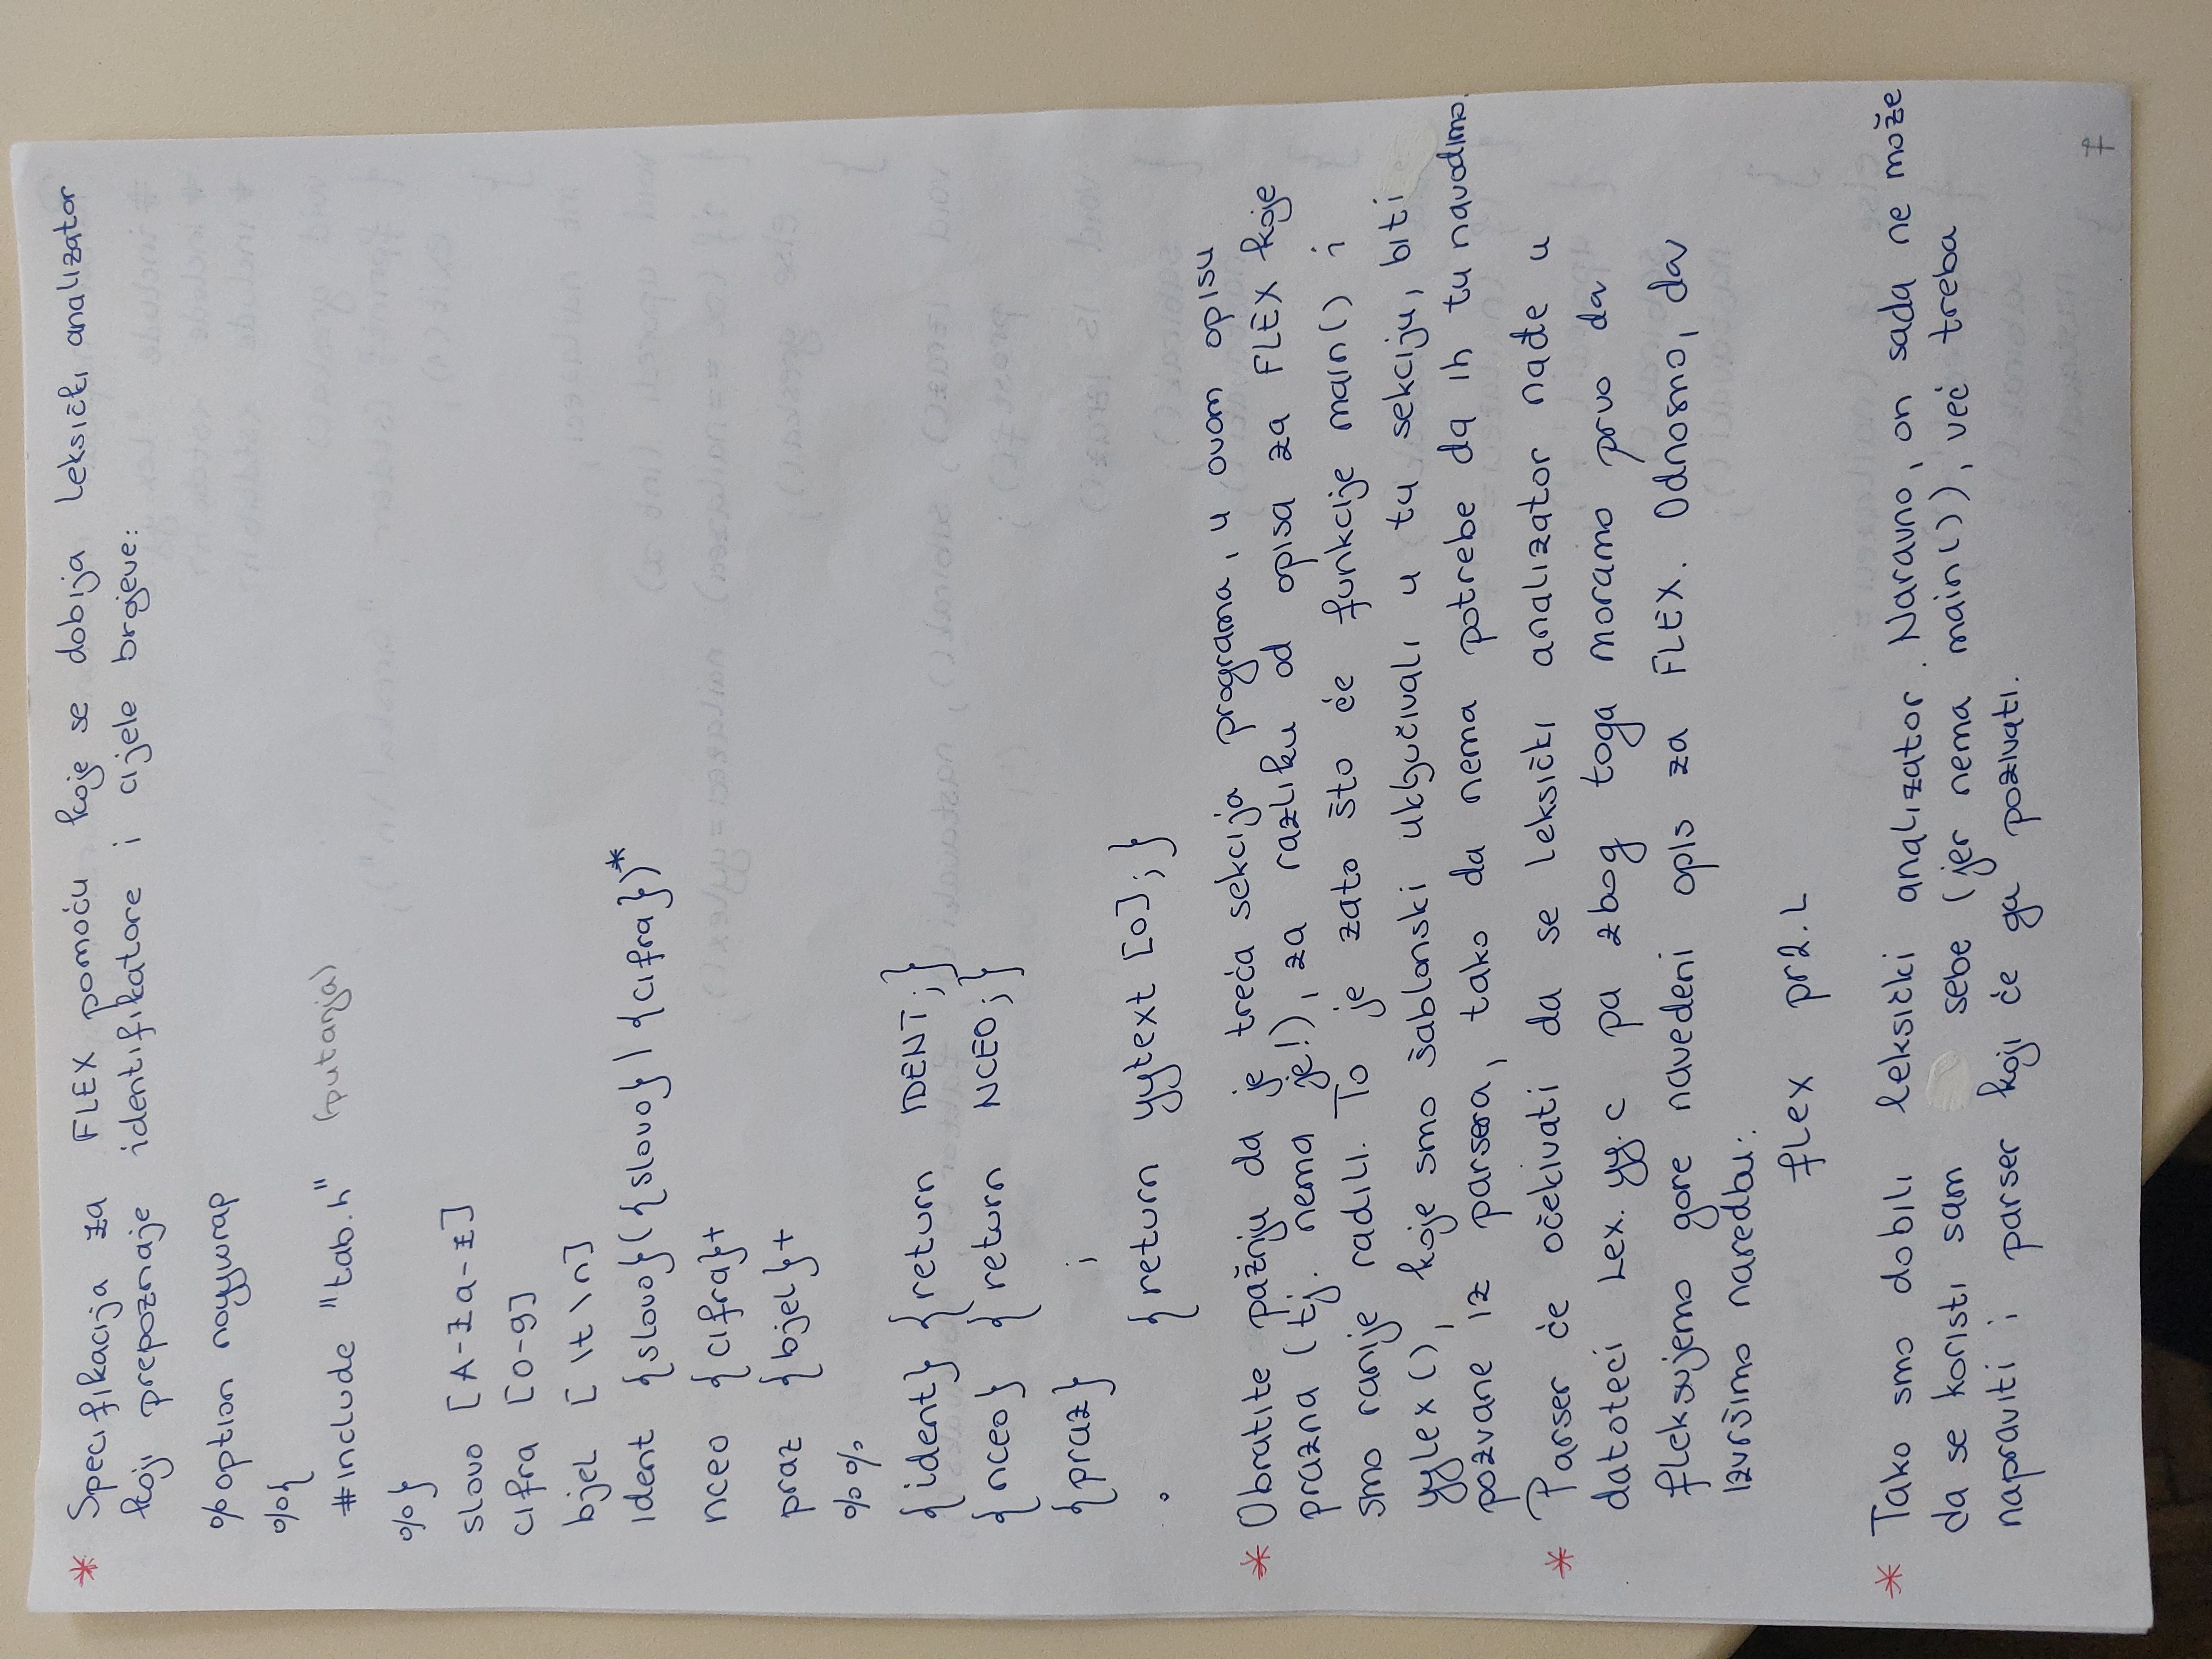 * Specifikacija za FLEX pomoću koje se dobija leksički analizator
koji prepoznaje identifikatore i cijele brojeve:
%option noyywrap
%{
#include "tab.h" (putanja)
%}
slovo [A-Za-z]
cifra [0-9]
bjel [ \t\n]
ident {slovo}({slovo}|{cifra})*
nceo {cifra}+
praz {bjel}+
%%
{ident} {return IDENT;}
{nceo} {return NCEO;}
{praz} ;
. {return yytext [0];}
* Obratite pažnju da je treća sekcija programa, u ovom opisu
prazna (tj. nema je!), za razliku od opisa za FLEX koje
smo ranije radili. To je zato što će funkcije main() i
yylex(), koje smo šablonski uključivali u tu sekciju, biti
pozvane iz parsera, tako da nema potrebe da ih tu navodimo.
* Parser će očekivati da se leksički analizator nađe u
datoteci Lex.yy.c pa zbog toga moramo prvo da
fleksujemo gore navedeni opis za FLEX. Odnosno, da
izvršimo naredbu:
flex pr2.L
* Tako smo dobili leksički analizator. Naravno, on sada ne može
da se koristi sam sebe (jer nema main()), već treba
napraviti i parser koji će ga pozivati.
7